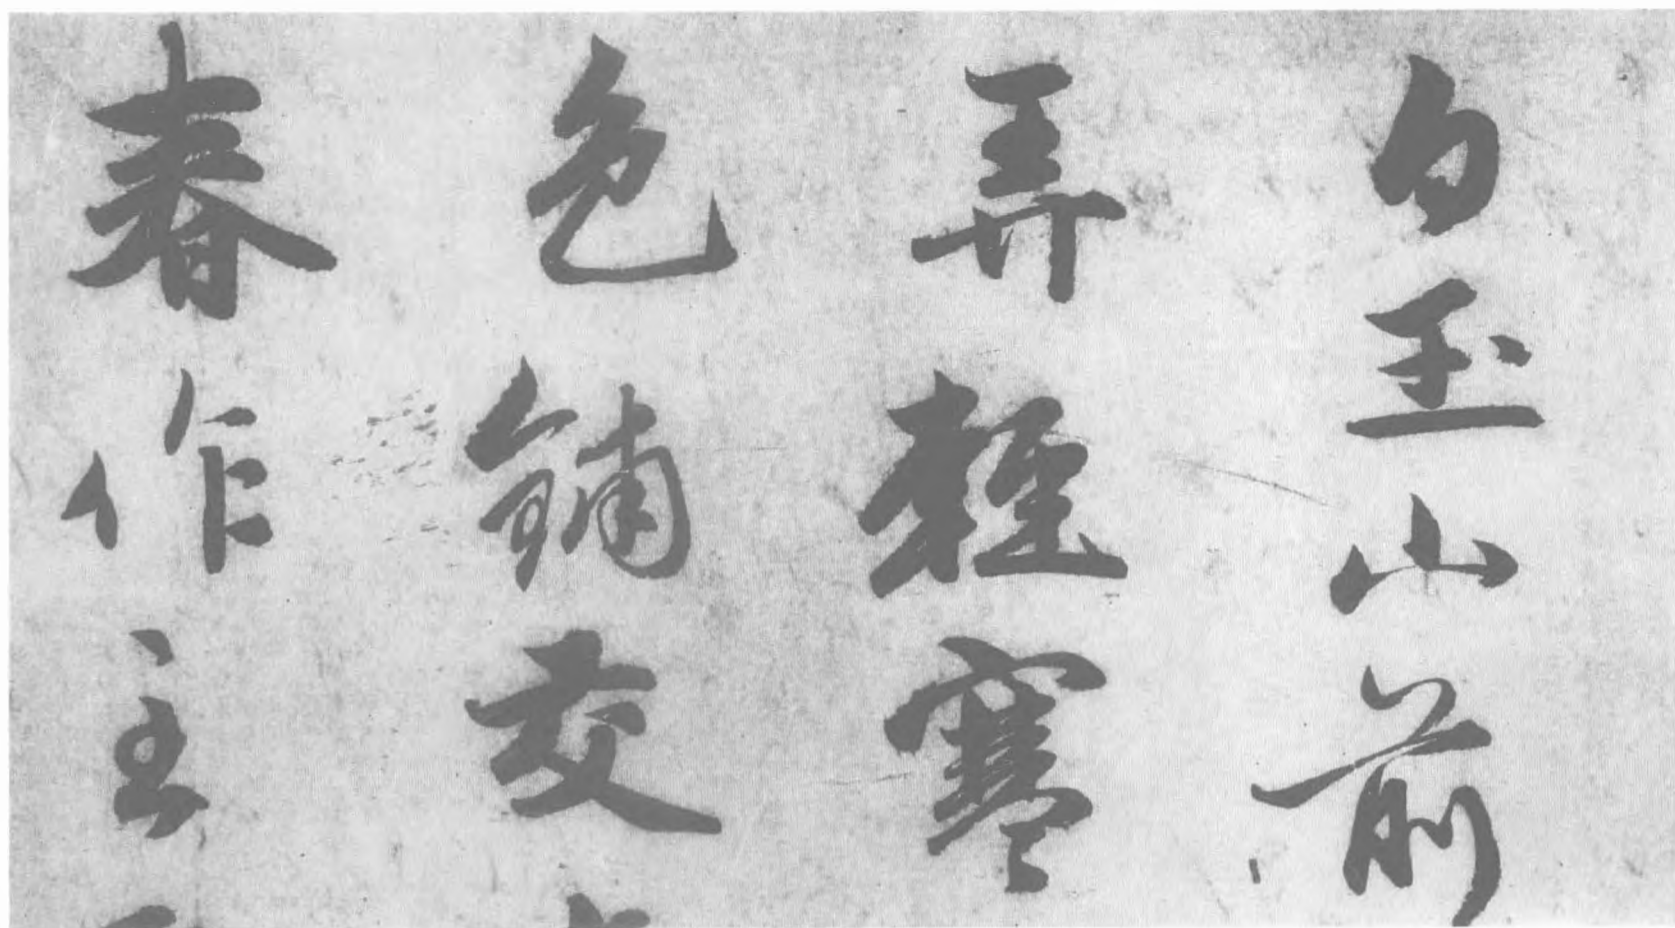 白玉山前
弄輕寒
色鋪交
春作主